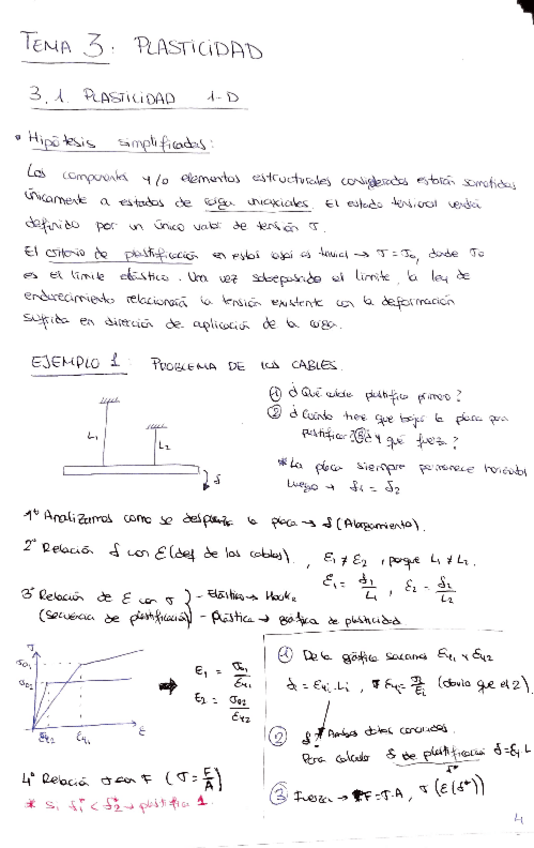 TEMA 3: PLASTICIDAD
3.1. PLASTICIDAD 1-D
• Hipótesis simplificadas:
Los componentes y/o elementos estructurales considerados estarán sometidos
únicamente a estados de carga uniaxiales. El estado tensional vendrá
definido por un único valor de tensión σ.
El criterio de plastificación en estos casos es trivial → σ = σ₀, donde σ₀
es el límite elástico. Una vez sobrepasado el límite, la ley de
endurecimiento relacionará la tensión existente con la deformación
sufrida en dirección de aplicación de la carga.
EJEMPLO 1: PROBLEMA DE LOS CABLES.
① ¿Qué cable plastifica primero?
② ¿Cuánto tiene que bajar la placa para
plastificar? ③ ¿Y qué fuerza?
* La placa siempre permanece horizontal
luego → δ₁ = δ₂
L₁
L₂
δ
1º Analizamos como se desplaza la placa → δ (Alargamiento).
2º Relación δ con ε (def de los cables), ε₁ ≠ ε₂, porque L₁ ≠ L₂.
ε₁ = δ₁/L₁, ε₂ = δ₂/L₂
3º Relación de ε con σ } - Elástica → Hooke
(Secuencia de plastificación) - Plástica → gráfica de plasticidad
σ
σ₀₁
σ₀₂
ε_y2 ε_y1 ε
E₁ = σ₀₁/ε_y1
E₂ = σ₀₂/ε_y2
① De la gráfica sacamos ε_y1 y ε_y2
(obvia que el 2).
② δ* Ambos datos conocidos.
Para calcular δ de plastificación
③ Fuerza → F = σ·A, σ(ε(δ*))
4º Relación σ con F (σ = F/A)
* Si δ₁* < δ₂* → plastifica 1.
4